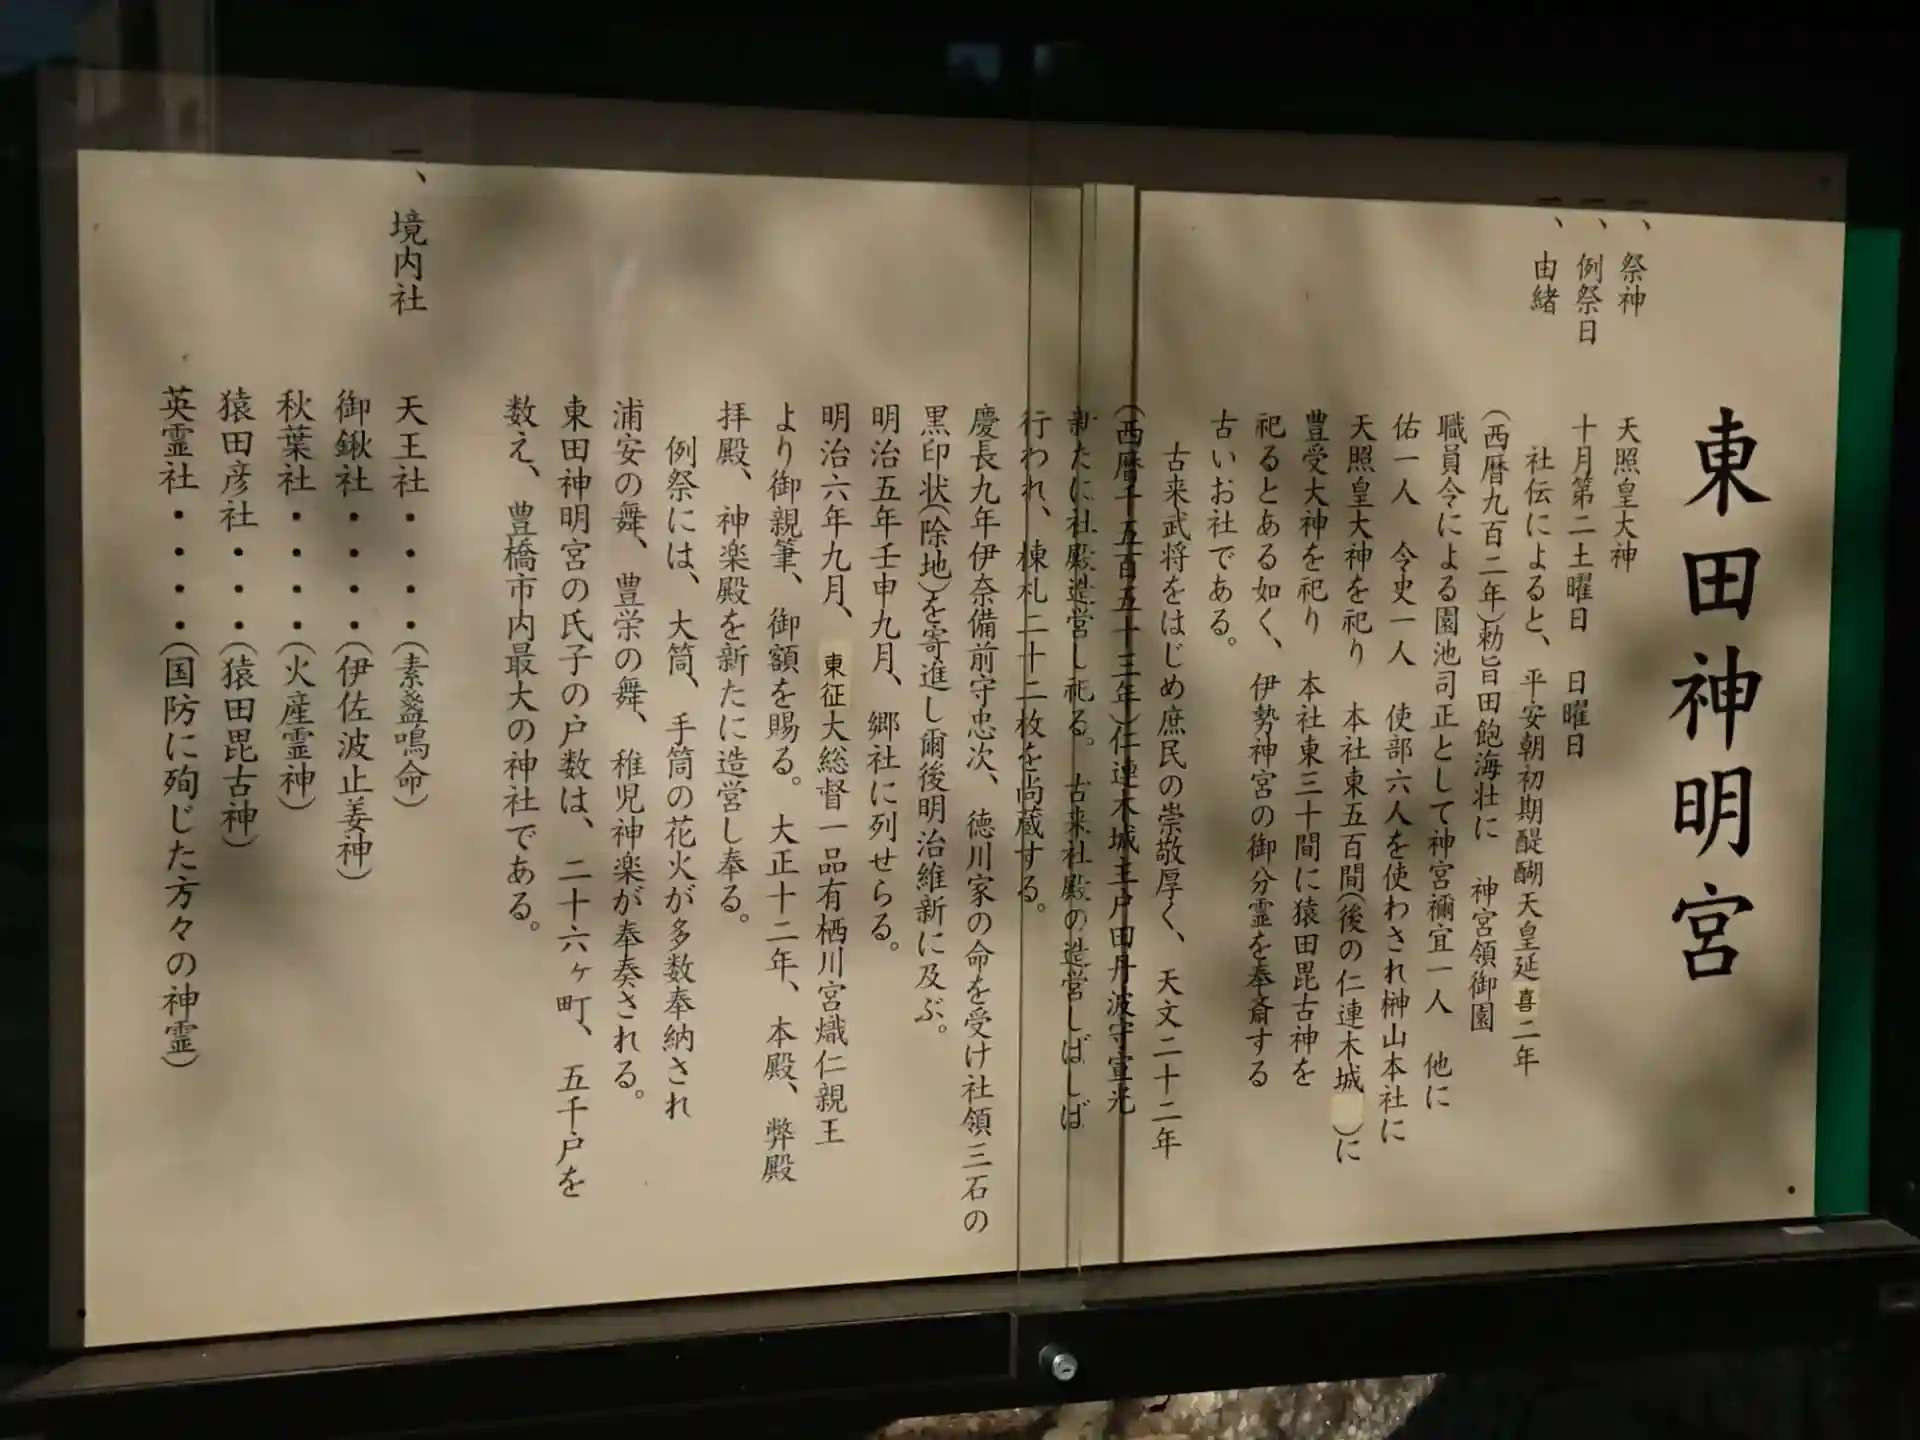 東田神明宮
一、祭神 天照皇大神
一、例祭日 十月第二土曜日 日曜日
一、由緒 社伝によると、平安朝初期醍醐天皇延喜二年
(西暦九百二年)勅旨田飽海壮に 神宮領御園
職員令による園池司正として神宮禰宜一人 他に
佑一人 令史一人 使部六人を使わされ榊山本社に
天照皇大神を祀り 本社東五百間(後の仁連木城 )に
豊受大神を祀り 本社東三十間に猿田毘古神を
祀るとある如く、伊勢神宮の御分霊を奉斎する
古いお社である。
古来武将をはじめ庶民の崇敬厚く、天文二十二年
(西暦千五百五十三年)仁連木城主戸田丹波守宣光
新たに社殿造営し祀る。古来社殿の造営しばしば
行われ、棟札二十二枚を尚蔵する。
慶長九年伊奈備前守忠次、徳川家の命を受け社領三石の
黒印状(除地)を寄進し爾後明治維新に及ぶ。
明治五年壬申九月、郷社に列せらる。
明治六年九月、東征大総督一品有栖川宮熾仁親王
より御親筆、御額を賜る。大正十二年、本殿、弊殿
拝殿、神楽殿を新たに造営し奉る。
例祭には、大筒、手筒の花火が多数奉納され
浦安の舞、豊栄の舞、稚児神楽が奉奏される。
東田神明宮の氏子の戸数は、二十六ヶ町、五千戸を
数え、豊橋市内最大の神社である。
一、境内社 天王社・・・・(素盞鳴命)
御鍬社・・・・(伊佐波止美神)
秋葉社・・・・(火産霊神)
猿田彦社・・・(猿田毘古神)
英霊社・・・・(国防に殉じた方々の神霊)